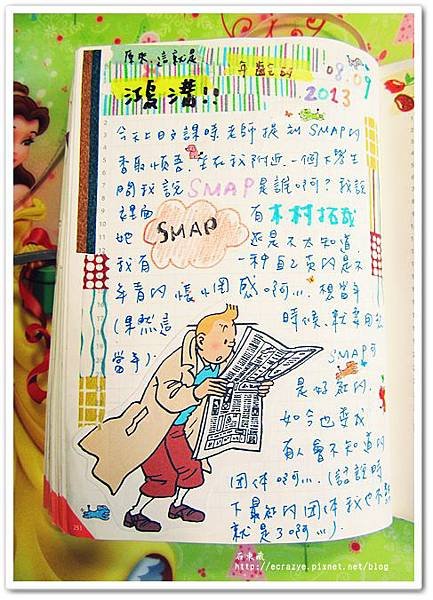 原來,這就是
年齡的
鴻溝!!
08.09
2013
今天上日文課時老師提到SMAP的
香取慎吾,坐在我附近一個大學生
問我說SMAP是誰啊?我說
裡面 有木村拓哉
SMAP
她 還是不太知道,
我有 一種自己真的是不
年青的悵惘感啊... 想當年
(果然這 時候,就要用到
當年) SMAP可
是好紅的,
如今也變成
有人會不知道的
团体啊... (話說時
下最紅的团体我也不
就是了啊...)
251
石東瘋
http://ecrazye.pixnet.net/blog